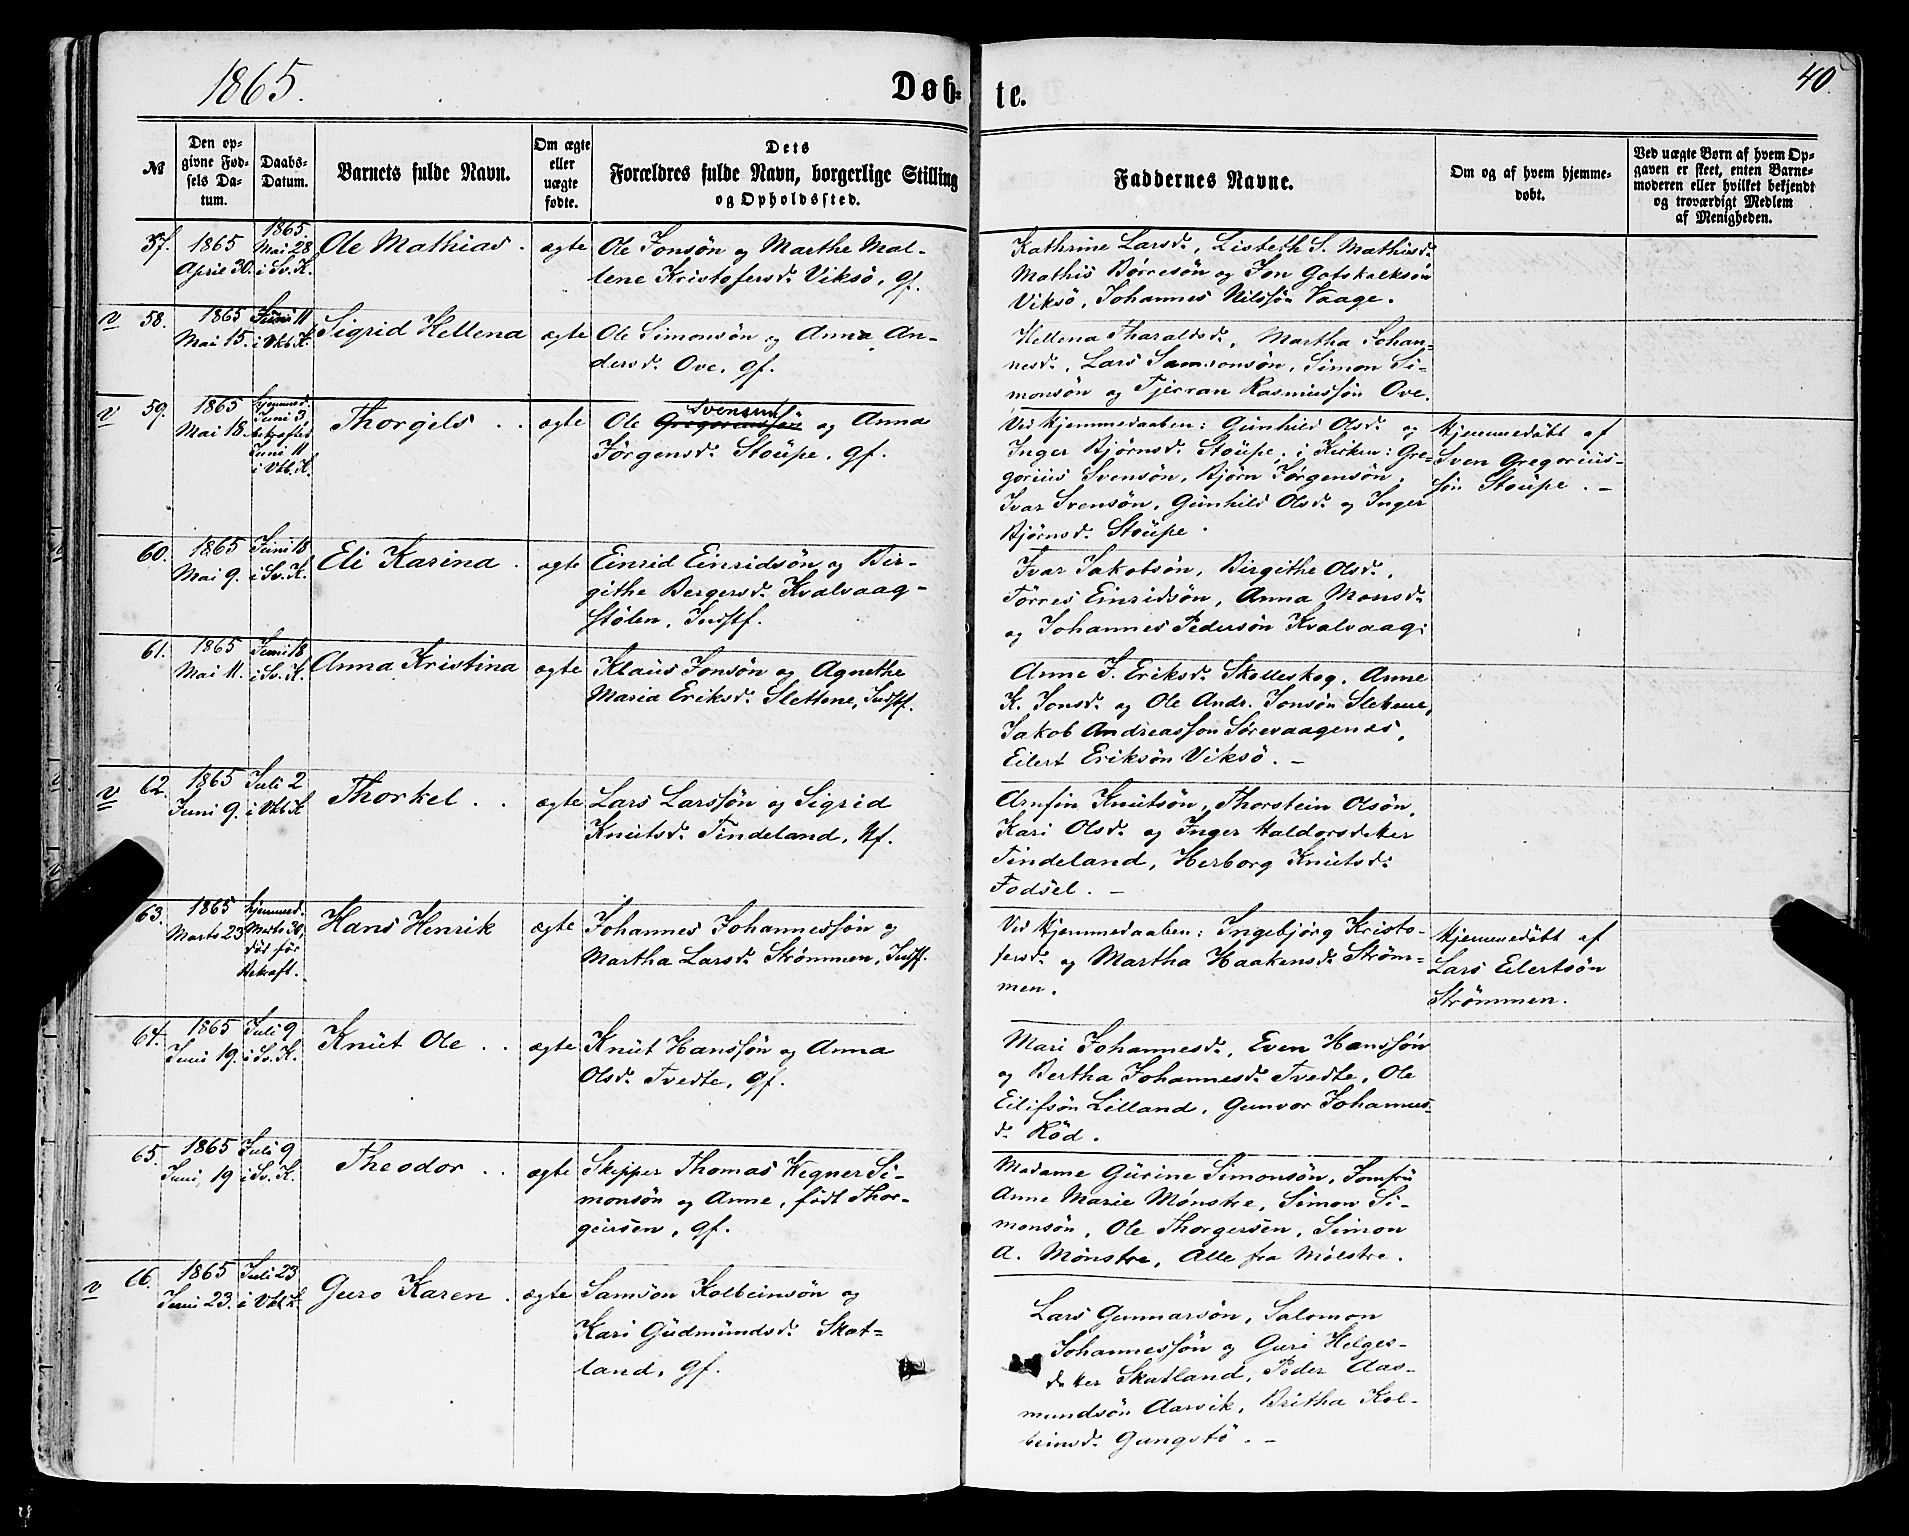 1865.
Døb-
te.
40.
№
Den op-
givne Fød-
sels Da-
tum.
Daabs-
Datum.
Barnets fulde Navn.
Om ægte
eller
uægte
fødte.
Dets
Forældres fulde Navn, borgerlige Stilling
og Opholdssted.
Faddernes Navne.
Om og af hvem hjemme-
døbt.
Ved uægte Børn af hvem Op-
gaven er skeet, enten Barne-
moderen eller hvilket bekjendt
og troværdigt Medlem
af Menigheden.
57.
1865
April 30.
1865.
Mai 28
i Sv. K.
Ole Mathias .
ægte
Ole Jonsøn og Marthe Mal-
lene Kristofersd. Viksø, gf.
Kathrine Larsd., Lisbeth S. Mathisd.
Mathis Børresøn og Jon Gotskalksøn
Viksø, Johannes Nilssøn Vaage.
v 58.
1865
Mai 15.
Juni 11
i Vkb. K.
Sigrid Hellena
ægte
Ole Simonsøn og Anna An-
dersd. Ove, gf.
Hellena Tharaldsd., Martha Johan-
nesd., Lars Samsonsøn, Simon Si-
monsøn og Tjerran Rasmussøn Ove.
v 59.
1865
Mai 18.
hjemmed.
Juni 3
bekræftet
Juni 11
i Vkb. K.
Thorgils . .
ægte
Svensøn
Ole Gregoriussøn og Anna
Jørgensd. Stoupe, gf.
Ved Hjemmedaaben: Gunhild Olsd. og
Inger Bjørnsd. Stoupe, i Kirken: Gre-
gorius Svensøn, Bjørn Jørgensøn,
Ivar Svensøn, Gunhild Olsd. og Inger
Bjørnsd. Stoupe.
Hjemmedøbt af
Sven Gregorius-
søn Stoupe . –
60.
1865
Mai 9.
Juni 18
i Sv. K.
Eli Karina .
ægte
Einrid Einridsøn og Bir-
githe Bergersd. Kvalvaag-
stølen, Indstf.
Ivar Jakobsøn, Birgithe Olsd.,
Torres Einridsøn, Anna Monsd.
og Johannes Pedersøn Kvalvaag.
61.
1865
Mai 11.
Juni 18
i Sv. K.
Anna Kristina
ægte
Klaus Jonsøn og Agnethe
Maria Eriksd. Slettene, Indstf.
Anne J. Eriksd. Skolleskog, Anne
K. Jonsd. og Ole Andr. Jonsøn Slettene,
Jakob Andreassøn Sørevaagenæs,
Eilert Eriksøn Viksø. –
v 62.
1865
Juni 9.
Juli 2
i Vkb. K
Thorkel . .
ægte
Lars Larssøn og Sigrid
Knutsd. Tindeland, Uf.
Arnfin Knutsøn, Thorstein Olsøn,
Kari Olsd. og Inger Haldorsdatter
Tindeland, Herborg Knutsd.
Fodsel. –
63.
1865
Marts 23
hjemmed.
Marts 30,
død før
Bekræft.
Hans Henrik
ægte
Johannes Johannessøn og
Martha Larsd. Strømmen, Indstf.
Ved Hjemmedaaben: Ingebjørg Kristo-
fersd. og Martha Haakensd. Strøm-
men.
Hjemmedøbt af
Lars Eilertsøn
Strømmen.
64.
1865
Juni 19.
Juli 9
i Sv. K.
Knut Ole . .
ægte
Knut Hanssøn og Anna
Olsd. Tvedte, gf.
Mari Johannesd., Even Hanssøn
og Bertha Johannesd. Tvedte, Ole
Eilifsøn Lilland, Gunvor Johannes-
d. Rød.
65.
1865
Juni 19
Juli 9
i Sv. K.
Theodor . .
ægte
Skipper Thomas Wegner Si-
monsøn og Anne, født Thor-
geirsen, gf.
Madame Gurine Simonsøn, Jomfru
Anne Marie Mønstre, Simon Si-
monsøn, Ole Thorgersen, Simon
A. Mønstre, Alle fra Mølstre.
v 66.
1865
Juni 23.
Juli 23
i Vkb. K.
Guro Karen .
ægte
Samson Kolbeinsøn og
Kari Gudmundsd. Skat-
land, gf.
Lars Gunnarsøn, Salomon
Johannessøn og Guri Helges-
datter Skatland, Peder Aas-
mundsøn Aarvik, Britha Kol-
beinsd. Gungstø. –